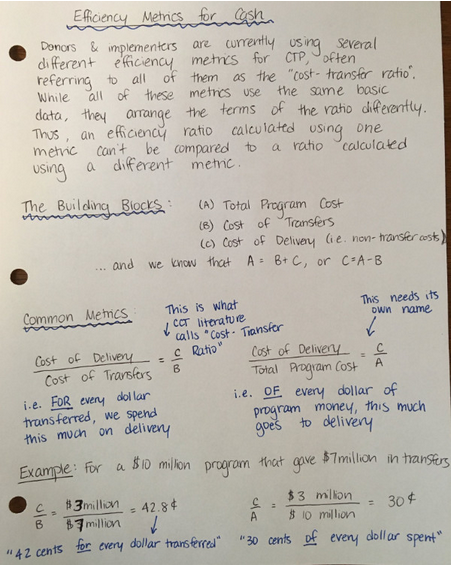 Efficiency Metrics for Cash
Donors & implementers are currently using several
different efficiency metrics for CTP, often
referring to all of them as the "cost-transfer ratio".
While all of these metrics use the same basic
data, they arrange the terms of the ratio differently.
Thus, an efficiency ratio calculated using one
metric can't be compared to a ratio calculated
using a different metric.
The Building Blocks: (A) Total Program Cost
(B) Cost of Transfers
(C) Cost of Delivery (i.e. non-transfer costs)
... and we know that A = B+C, or C=A-B
Common Metrics:
This is what
CCT literature
calls "Cost-Transfer
Ratio"
This needs its
own name
Cost of Delivery / Cost of Transfers = C/B
Cost of Delivery / Total Program Cost = C/A
i.e. FOR every dollar
transferred, we spend
this much on delivery
i.e. OF every dollar of
program money, this much
goes to delivery
Example: For a $10 million program that gave $7million in transfers
C/B = $3million / $7million = 42.8¢
C/A = $3 million / $10 million = 30¢
"42 cents for every dollar transferred"
"30 cents of every dollar spent"